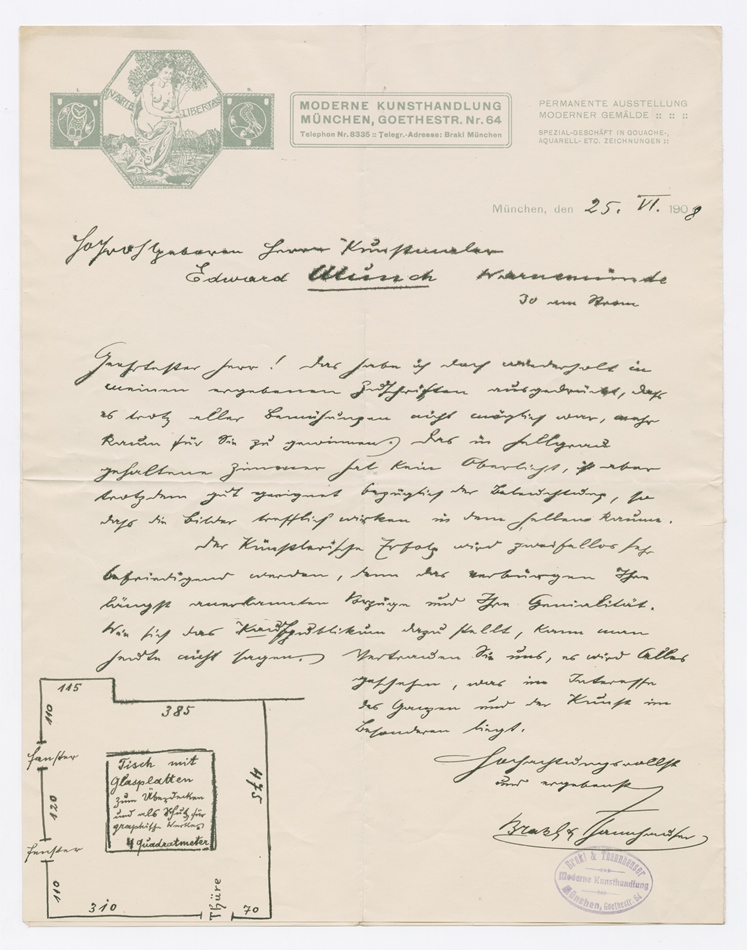 IN ARTE LIBERTAS
MODERNE KUNSTHANDLUNG
MÜNCHEN, GOETHESTR. Nr. 64
Telephon Nr. 8335 :: Telegr.-Adresse: Brakl München
PERMANENTE AUSSTELLUNG
MODERNER GEMÄLDE :: : ::
SPEZIAL-GESCHÄFT IN GOUACHE-,
AQUARELL- ETC. ZEICHNUNGEN ::
München, den 25. VI. 1908
Hochwohlgeboren Herrn Kunstmaler
Edward Munch Warnemünde
30 am Strom
Geehrtester Herr! Das habe ich doch wiederholt in
meinen ergebenen Zuschriften ausgedrückt, dass
es trotz aller Bemühungen nicht möglich war, mehr
Raum für Sie zu gewinnen. Das in hellgrau
gehaltene Zimmer hat kein Oberlicht, ist aber
trotzdem gut geeignet bezüglich der Beleuchtung, so
dass die Bilder trefflich wirken in dem hellen Raume.
Der Künstlerische Erfolg wird zweifellos sehr
befriedigend werden, denn das verbürgen Ihre
längst anerkannten Vorzüge und Ihre Genialität.
Wie sich das Kaufpublikum dazu stellt, kann man
heute nicht sagen. Vertrauen Sie uns, es wird Alles
geschehen, was im Interesse
des Ganzen und der Kunst im
Besonderen liegt.
Hochachtungsvollst
und ergebenst
Brakl & Thannhauser
Brakl & Thannhauser
Moderne Kunsthandlung
München, Goethestr. 64
115
385
110
Fenster
120
Fenster
110
475
Tisch mit
Glasplatten
zum Überdecken
und als Schutz für
graphische Werke
4 Quadratmeter
310
Thüre
70